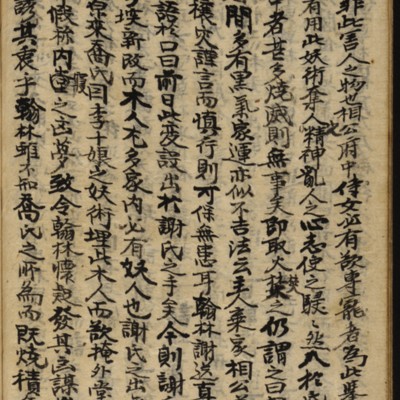 非此害人之物也相公府中侍女必有欲専寵者為此
有用此妖術奪人精神亂人之心志使之駸〻然入於
中者甚多燒滅則無事矣即取火焚之仍謂之曰
間多有黑氣家運亦似不吉法云主人乘家相公
禳灾謹言而慎行則可保無患耳翰林謝送真
語於口曰前日此变設出於謝氏之手矣今則謝
新改而木人札多家內必有妖人也謝氏之出
原來喬氏曰李十娘之妖術埋此木人而欲掩外
假称內之出夢致令翰林懷発其凶謀
該其衷乎翰林雖不知喬氏之所為而既燒積